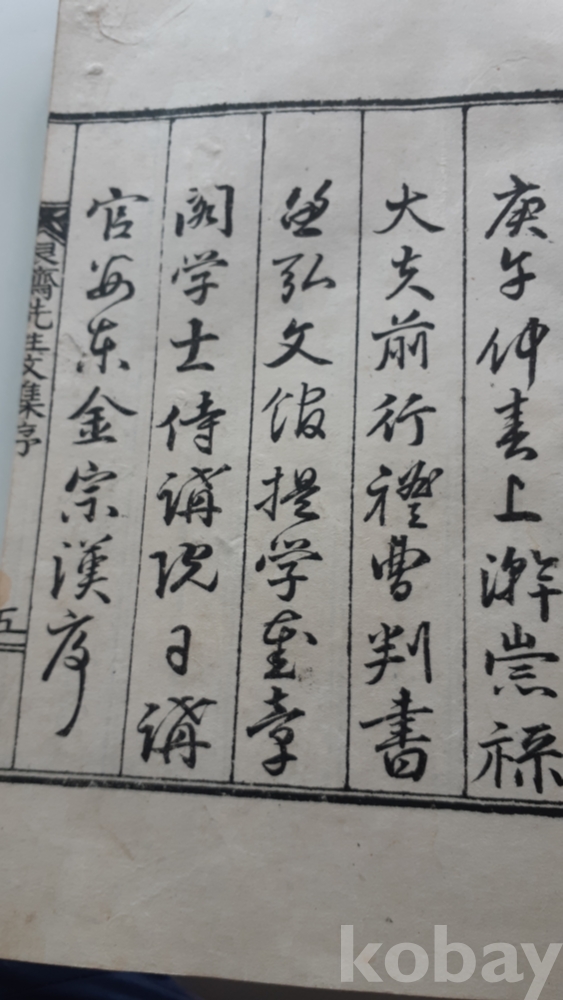 庚午仲春上澣崇祿
大夫前行禮曹判書
兼弘文館提学奎章
閣学士侍講院日講
官安東金宗漢序
齋先生文集序
五
kobay